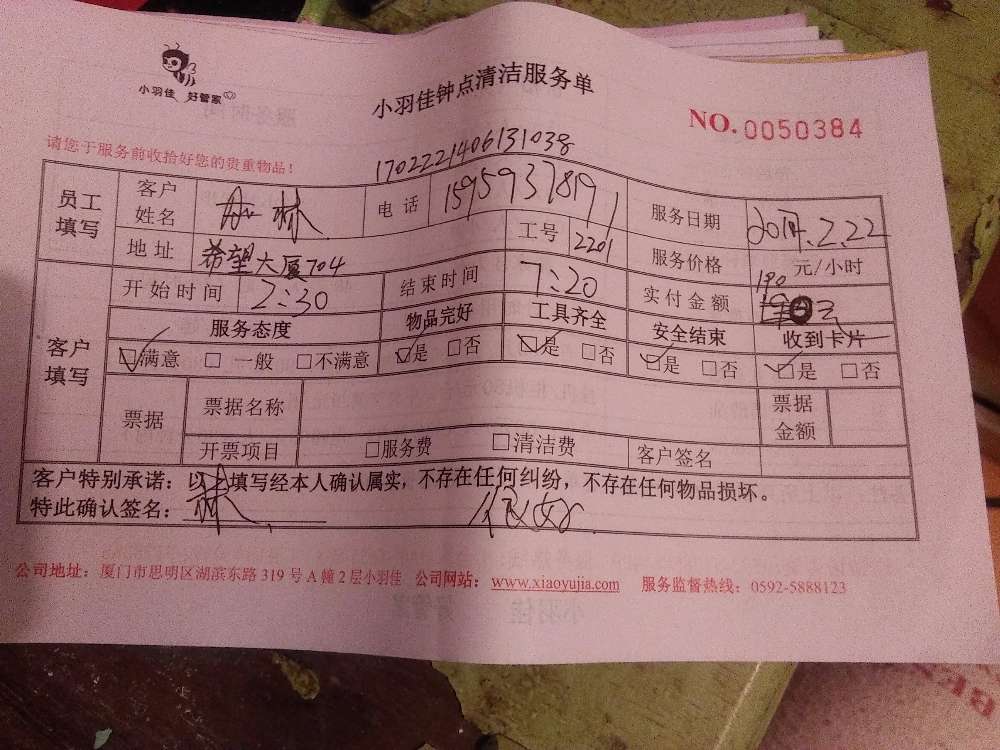 小羽佳 好管家
小羽佳钟点清洁服务单
NO. 0050384
请您于服务前收拾好您的贵重物品！
1702221406131038
员工填写 客户姓名 林 电话 15959378191 服务日期 2017.2.22
地址 希望大厦704 工号 2201 服务价格 元/小时
开始时间 2:30 结束时间 7:20 实付金额 190 元
客户填写 服务态度 物品完好 工具齐全 安全结束 收到卡片
☑满意 □一般 □不满意 ☑是 □否 ☑是 □否 ☑是 □否 ☑是 □否
票据 票据名称 票据金额
开票项目 □服务费 □清洁费 客户签名
客户特别承诺：以上填写经本人确认属实，不存在任何纠纷，不存在任何物品损坏。
特此确认签名： 林
公司地址：厦门市思明区湖滨东路319号A幢2层小羽佳 公司网站：www.xiaoyujia.com 服务监督热线：0592-5888123